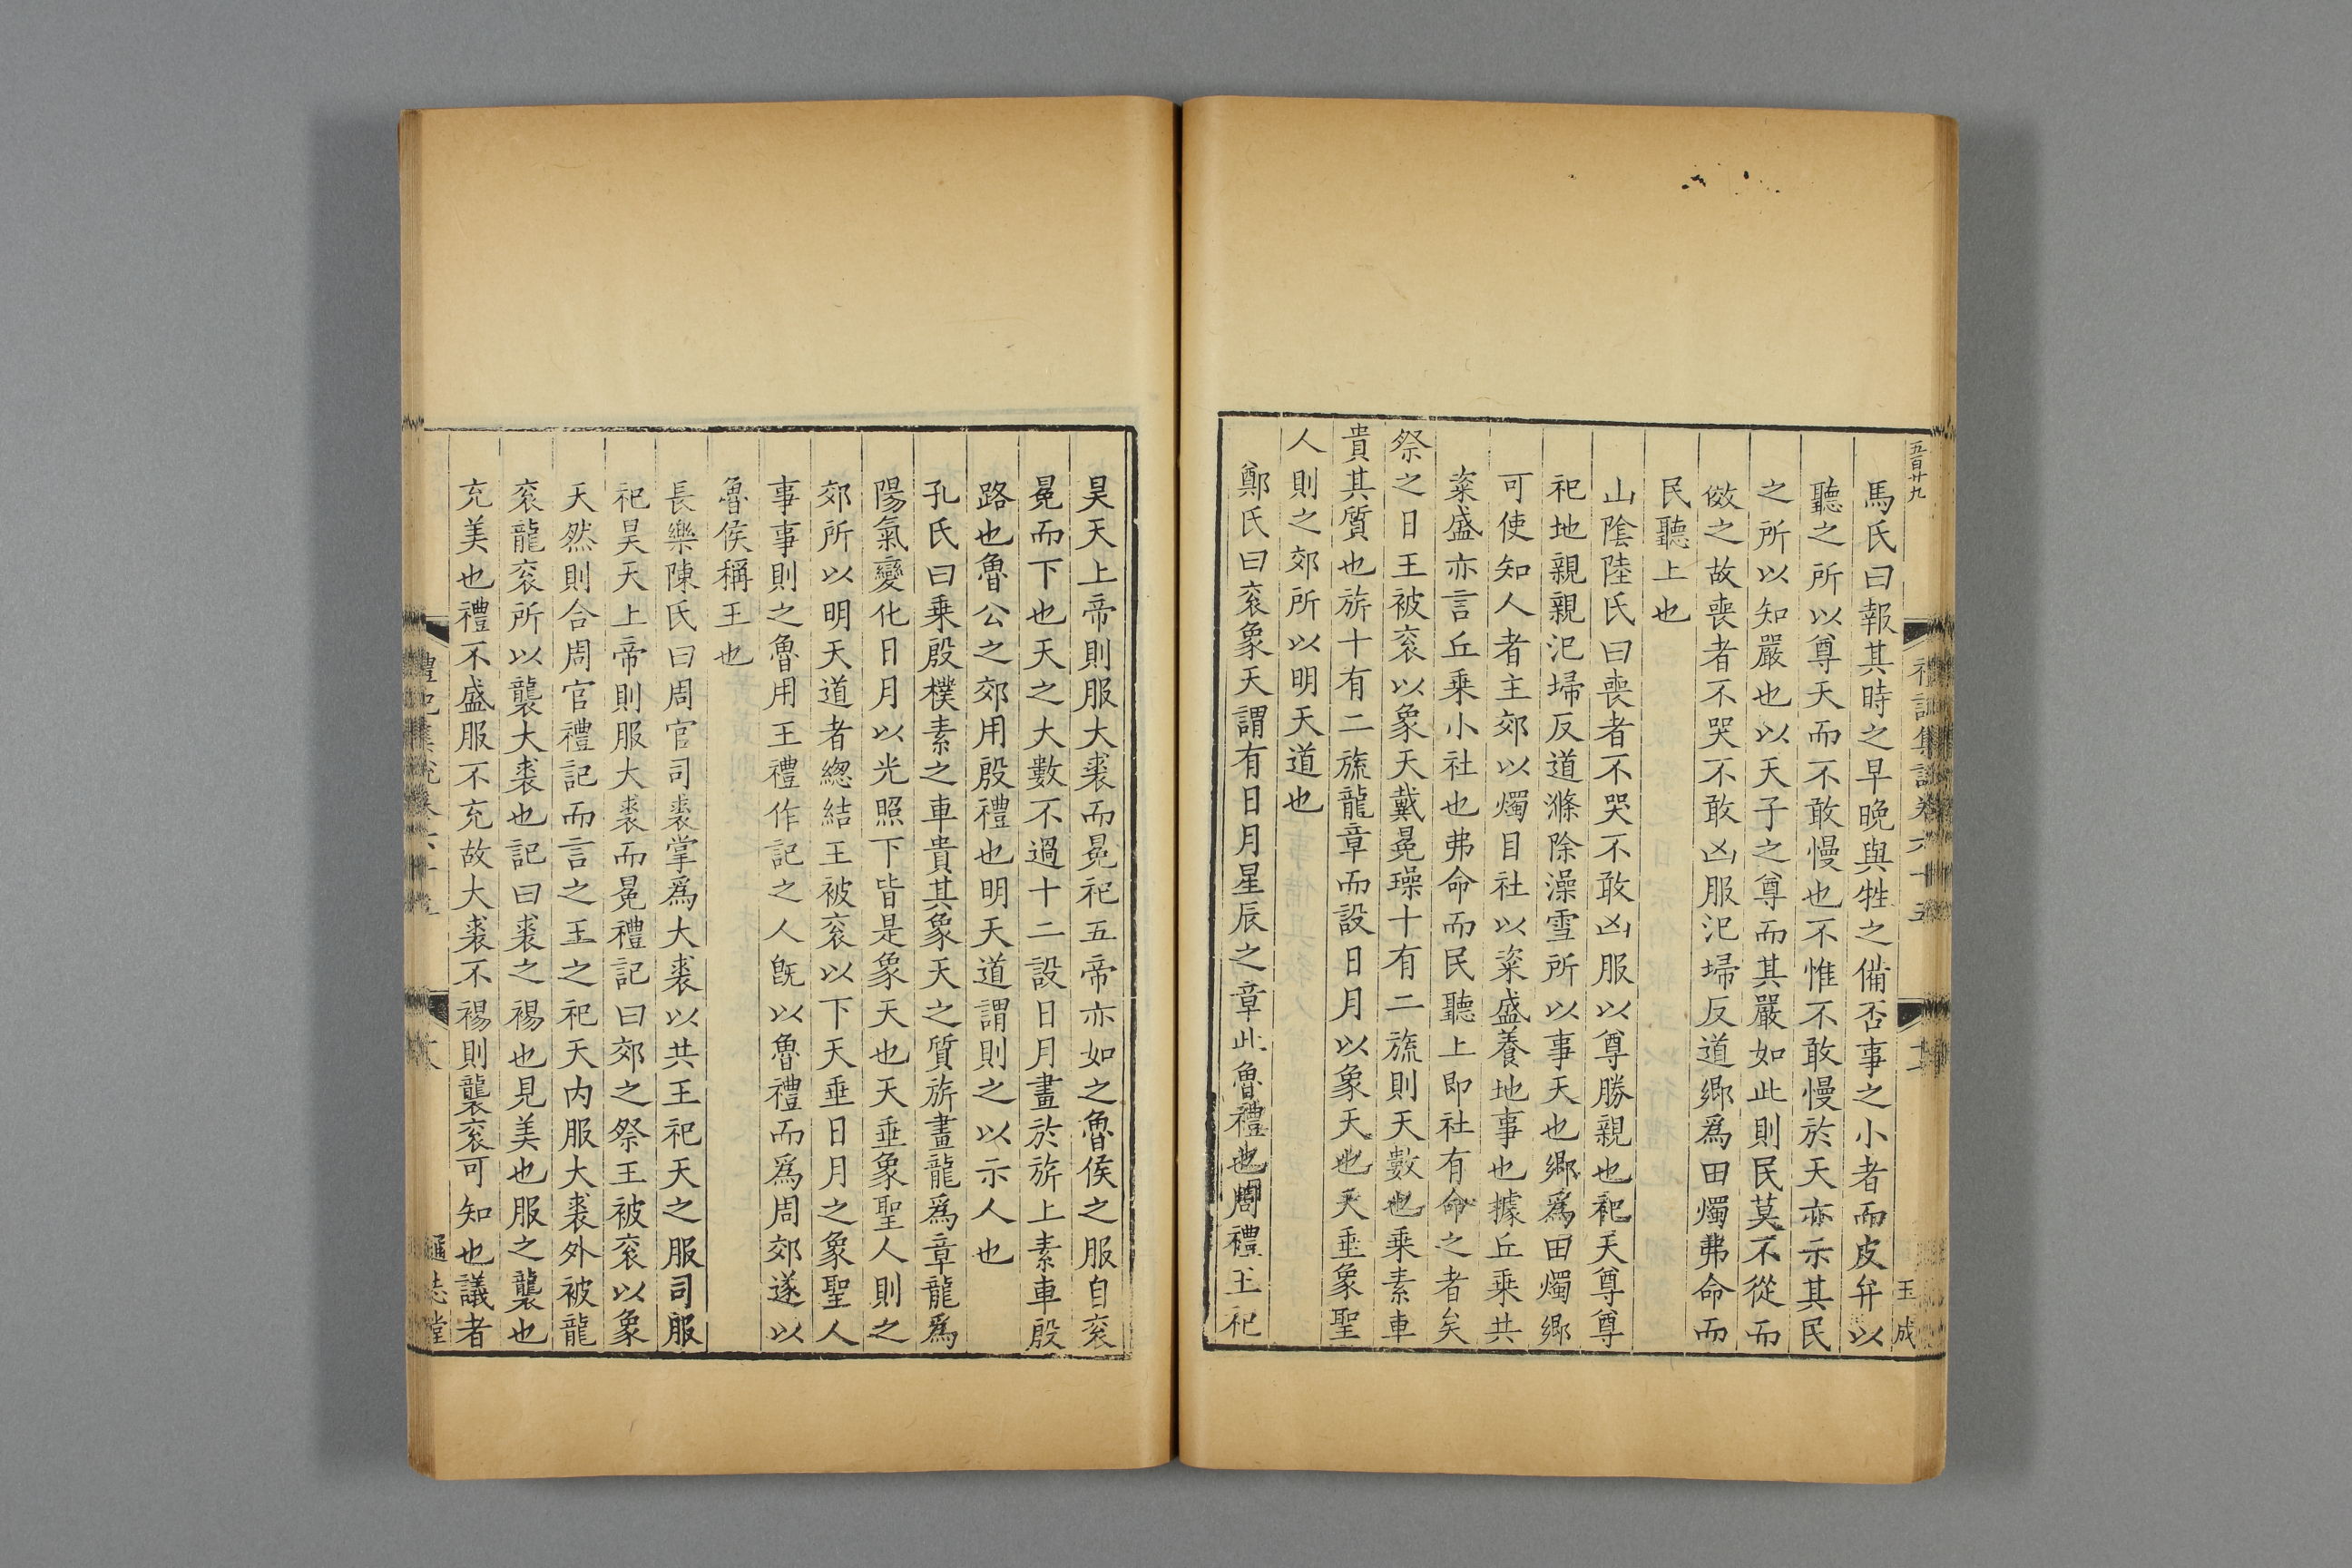 五百廿九
馬氏曰報其時之早晩與牲之備否事之小者而皮弁以
聽之所以尊天而不敢慢也不惟不敢慢於天亦示其民
之所以知嚴也以天子之尊而其嚴如此則民莫不從而
傚之故喪者不哭不敢凶服汜埽反道鄉爲田燭弗命而
民聽上也
山陰陸氏曰喪者不哭不敢凶服以尊勝親也祀天尊尊
祀地親親汜埽反道滌除澡雪所以事天也鄉爲田燭鄉
可使知人者主郊以燭目社以粢盛養地事也據丘乗共
粢盛亦言丘乗小社也弗命而民聽上即社有命之者矣
祭之日王被衮以象天戴冕璪十有二旒則天數也乗素車
貴其質也旂十有二旒龍章而設日月以象天也天垂象聖
人則之郊所以明天道也
鄭氏曰衮象天謂有日月星辰之章此魯禮也周禮王祀
玉成
昊天上帝則服大裘而冕祀五帝亦如之魯侯之服自衮
冕而下也天之大數不過十二設日月畫於旂上素車殷
路也魯公之郊用殷禮也明天道謂則之以示人也
孔氏曰乗殷樸素之車貴其象天之質旂畫龍爲章龍爲
陽氣變化日月以光照下皆是象天也天垂象聖人則之
郊所以明天道者緫結王被衮以下天垂日月之象聖人
事事則之魯用王禮作記之人旣以魯禮而爲周郊遂以
魯侯稱王也
長樂陳氏曰周官司裘掌爲大裘以共王祀天之服司服
祀昊天上帝則服大裘而冕禮記曰郊之祭王被衮以象
天然則合周官禮記而言之王之祀天内服大裘外被龍
衮龍衮所以襲大裘也記曰裘之裼也見美也服之襲也
充美也禮不盛服不充故大裘不裼則襲衮可知也議者